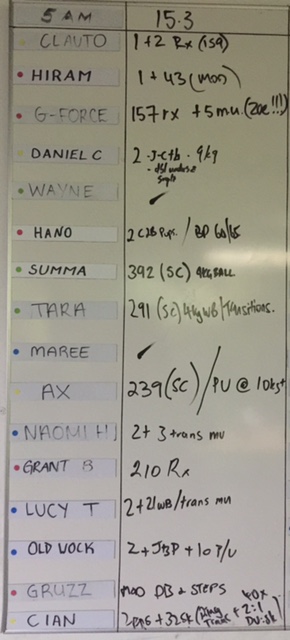 5 AM 15.3
CLAUTO 1+2 Rx (159)
HIRAM 1+43 (mod)
G-FORCE 157 rx +5 mu. (Zoe!!!)
DANIEL C 2 · J-C+b · 9kg
WAYNE ✓
HANO 2 C2B Pups. / BP 60/65
SUMMA 392 (SC) 4KG BALL
TARA 291 (SC) 4kg WB/Transitions.
MAREE ✓
AX 239 (SC) / PU @ 10kg+
NAOMI H 2+3 trans mu
GRANT B 210 Rx
LUCY T 2+21WB/trans mu
OLD VOCK 2+JBP+10 P/U
GRUZZ MOD DB + STEPS
CIAN